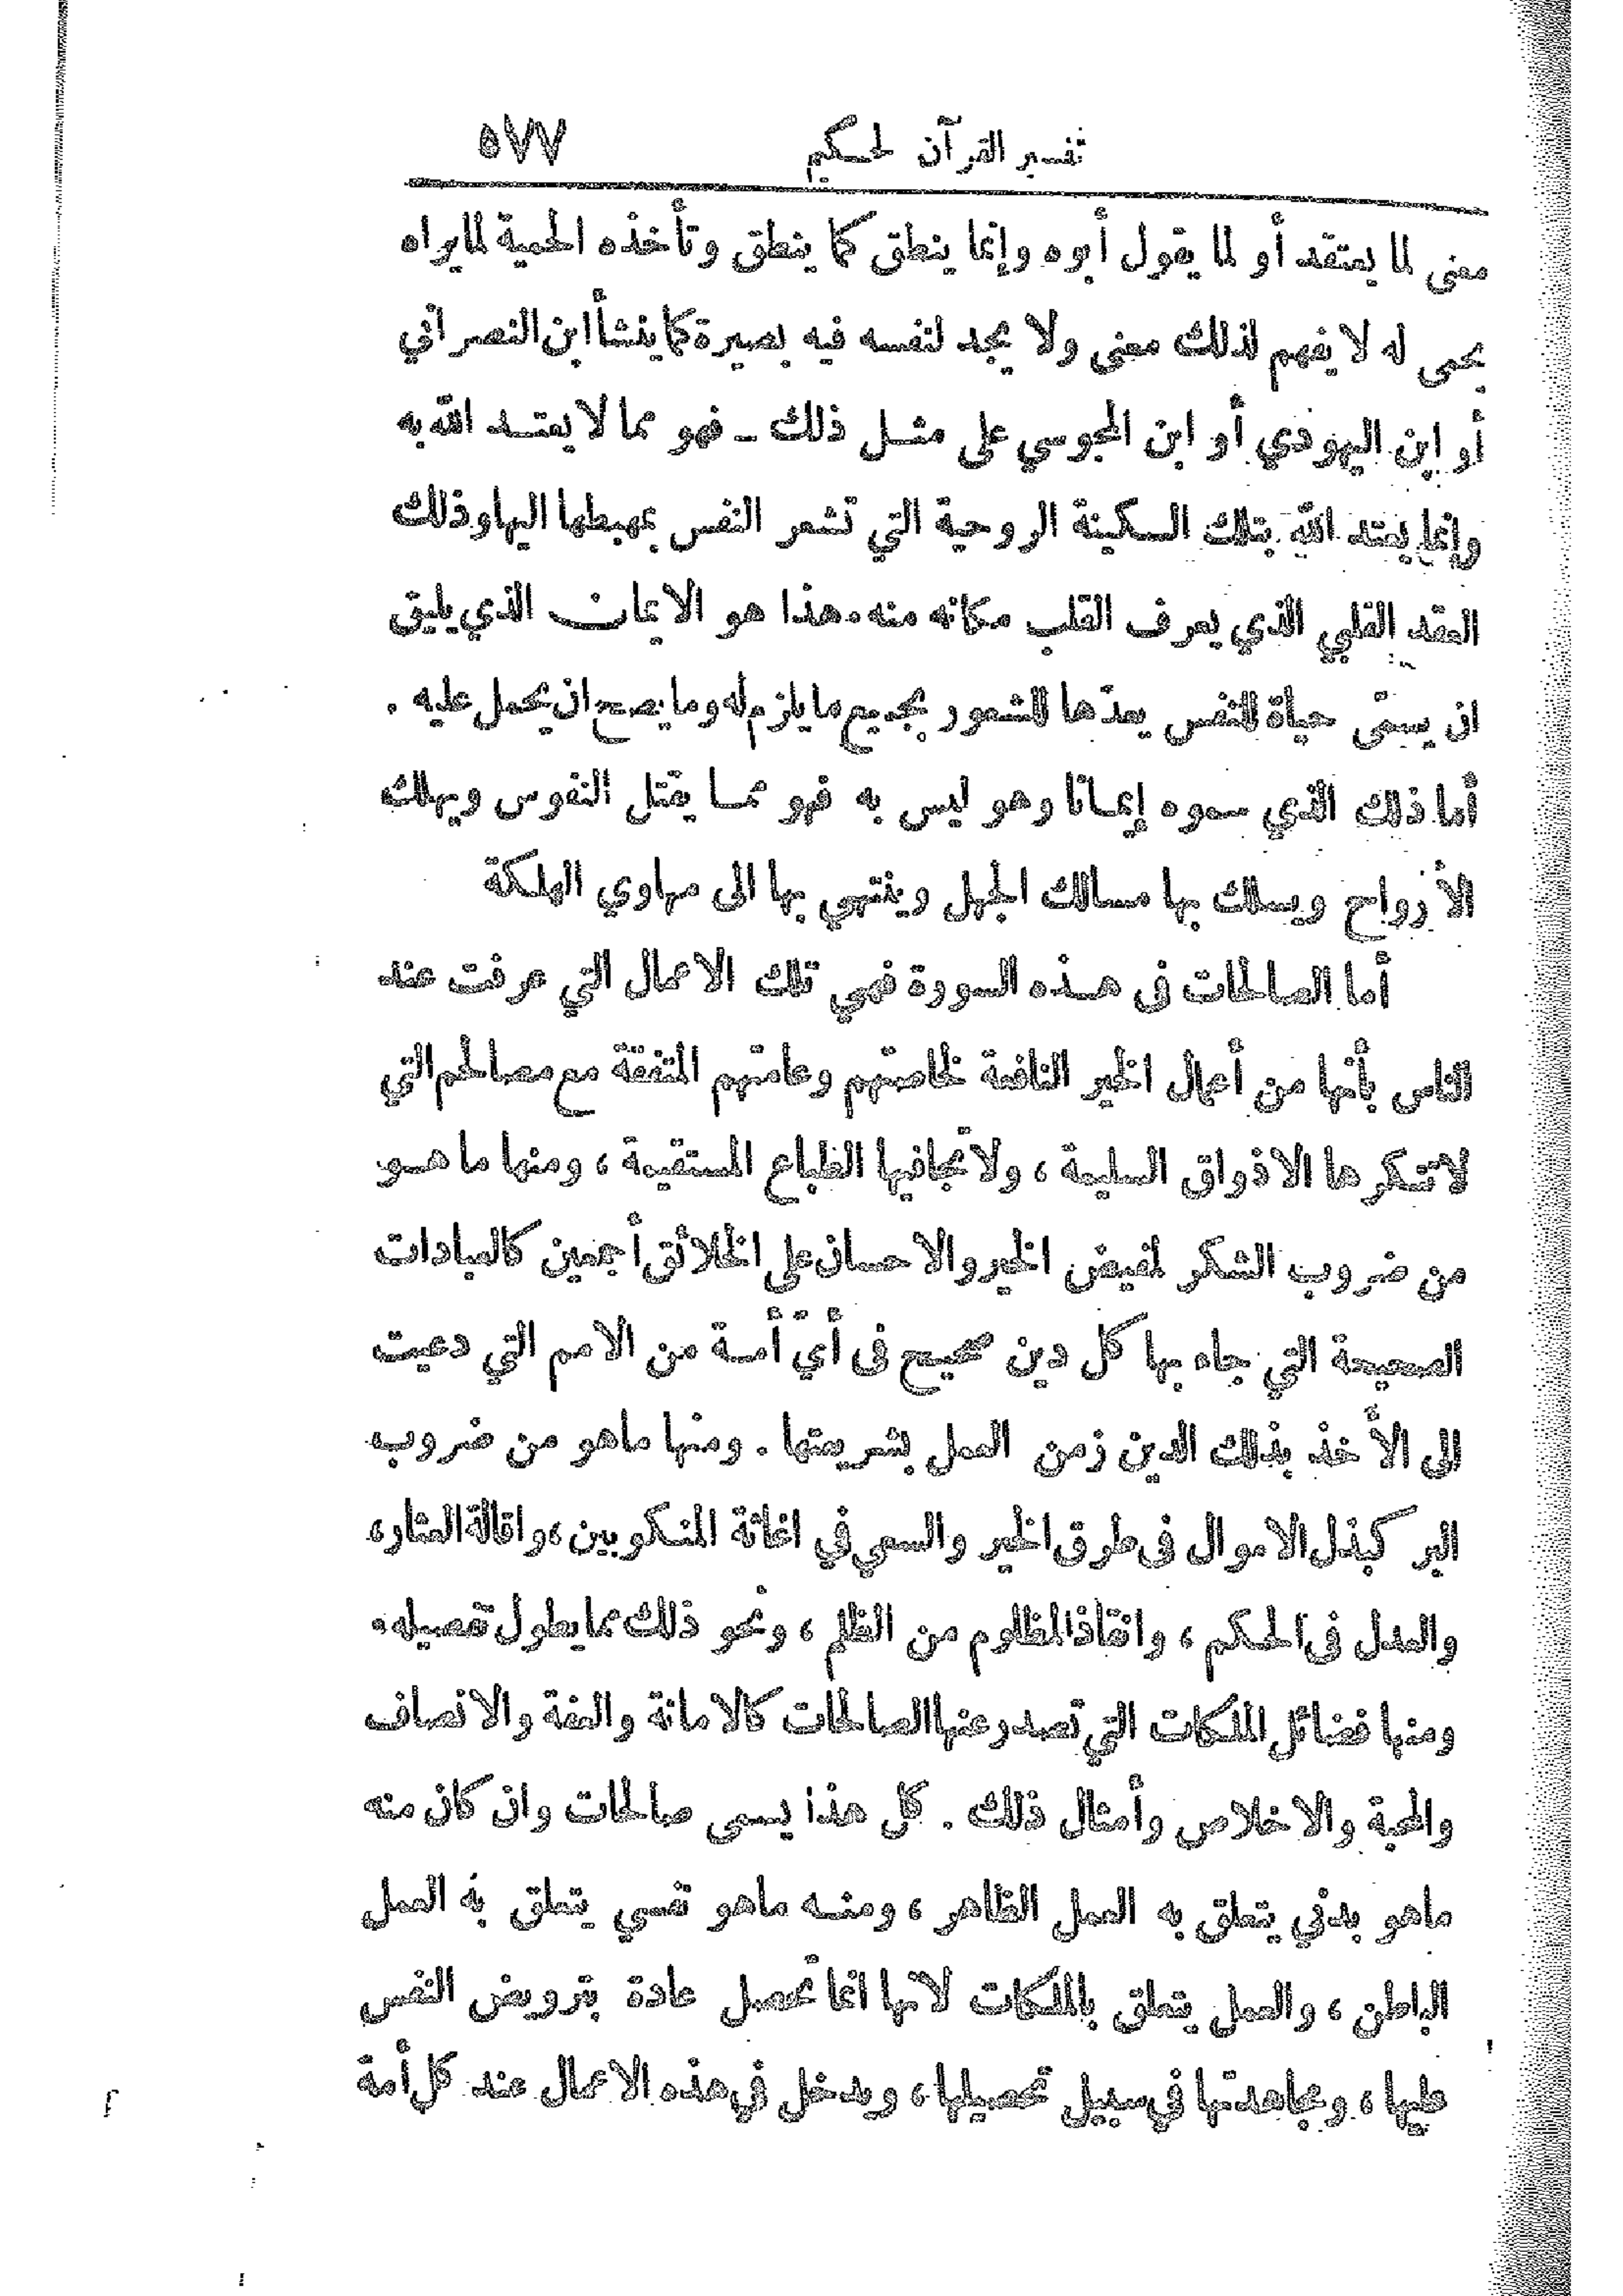 تفسير القرآن الحكيم ٥٧٧
معنى لما يعتقد أو لما يقول أبوه وإنما ينطق كما ينطق وتأخذه الحمية لما يراه
يحمى له لا يفهم لذلك معنى ولا يجد لنفسه فيه بصيرة كما ينشأ ابن النصراني
أو ابن اليهودي أو ابن المجوسي على مثل ذلك ـ فهو مما لا يعتد الله به
وإنما يعتد الله بتلك السكينة الروحية التي تشعر النفس بمهبطها اليها وذلك
العقد القلبي الذي يعرف القلب مكانه منه. هذا هو الايمان الذي يليق
ان يسمّى حياة للنفس يعدّها للشعور بجميع ما يلزم له وما يصح ان يحمل عليه .
أما ذلك الذي سموه إيمانا وهو ليس به فهو مما يقتل النفوس ويهلك
الأرواح ويسلك بها مسالك الجهل وينتهي بها الى مهاوي الهلكة
أما الصالحات فى هذه السورة فهي تلك الاعمال التي عرفت عند
الناس بأنها من أعمال الخير النافعة لخاصتهم وعامتهم المتفقة مع مصالحهم التي
لا تنكرها الاذواق السليمة ، ولا تجافيها الطباع المستقيمة ، ومنها ما هو
من ضروب الشكر لمفيض الخير والاحسان على الخلائق أجمعين كالعبادات
الصحيحة التي جاء بها كل دين صحيح فى أيّ أمة من الامم التي دعيت
الى الأخذ بذلك الدين زمن العمل بشريعتها . ومنها ماهو من ضروب
البر كبذل الاموال فى طرق الخير والسعي في اغاثة المنكوبين ، واقالة العثار ،
والعدل فى الحكم ، وانقاذ المظلوم من الظلم ، ونحو ذلك مما يطول تفصيله.
ومنها فضائل الملكات التي تصدر عنها الصالحات كالامانة والعفة والانصاف
والمحبة والاخلاص وأمثال ذلك . كل هذا يسمى صالحات وان كان منه
ماهو بدني يتعلق به العمل الظاهر ، ومنه ماهو نفسي يتعلق به العمل
الباطن ، والعمل يتعلق بالملكات لانها انما تحصل عادة بترويض النفس
عليها ، ومجاهدتها في سبيل تحصيلها ، ويدخل في هذه الاعمال عند كل أمة